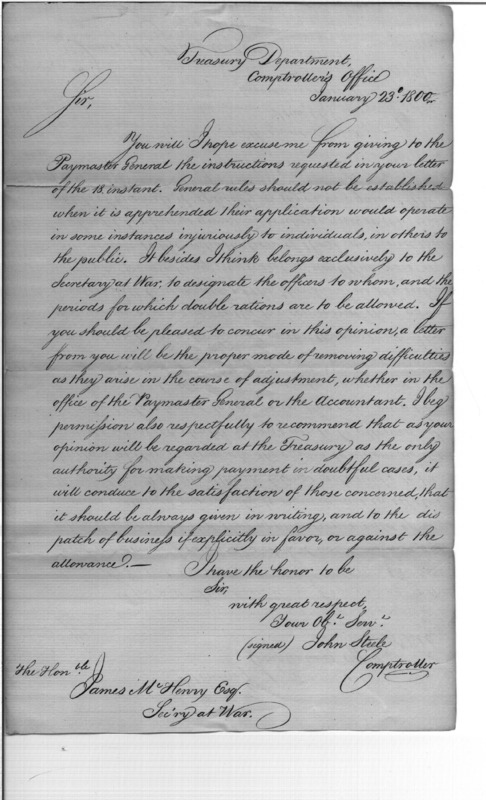 Treasury Department,
Comptroller's Office
January 23d 1800.
Sir,
You will I hope excuse me from giving to the
Paymaster General the instructions requested in your letter
of the 18 instant. General rules should not be established
when it is apprehended their application would operate
in some instances injuriously to individuals, in others to
the public. It besides I think belongs exclusively to the
Secretary at War, to designate the officers to whom, and the
periods for which double rations are to be allowed. If
you should be pleased to concur in this opinion, a letter
from you will be the proper mode of removing difficulties
as they arise in the course of adjustment, whether in the
office of the Paymaster General or the Accountant. I beg
permission also respectfully to recommend that as your
opinion will be regarded at the Treasury as the only
authority for making payment in doubtful cases, it
will conduce to the satisfaction of those concerned, that
it should be always given in writing, and to the dis
patch of business if explicitly in favor, or against the
allowance.—
I have the honor to be
Sir,
with great respect,
Your Obt. Servt.
(signed) John Steele
Comptroller
The Honble
James McHenry Esqr.
Sec'ry at War.